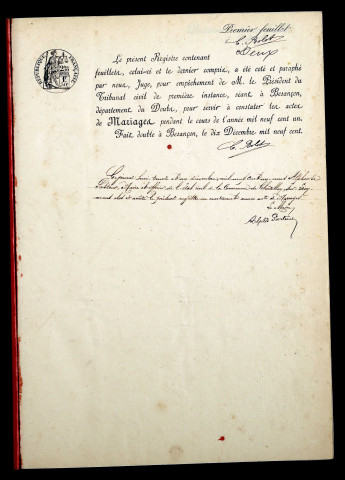 Premier feuillet
Deux
RÉPUBLIQUE FRANÇAISE
Le présent Registre contenant
feuillets, celui-ci et le dernier compris, a été coté et paraphé
par nous, Juge, pour empêchement de M. le Président du
Tribunal civil de première instance, séant à Besançon,
département du Doubs, pour servir à constater les actes
de Mariages pendant le cours de l'année mil neuf cent un.
Fait double à Besançon, le dix Décembre mil neuf cent.
Ce jourd'hui trente et un décembre mil neuf cent un, nous
Maire et officier de l'état civil de la Commune de
clos et arrêté le présent registre
Le Maire